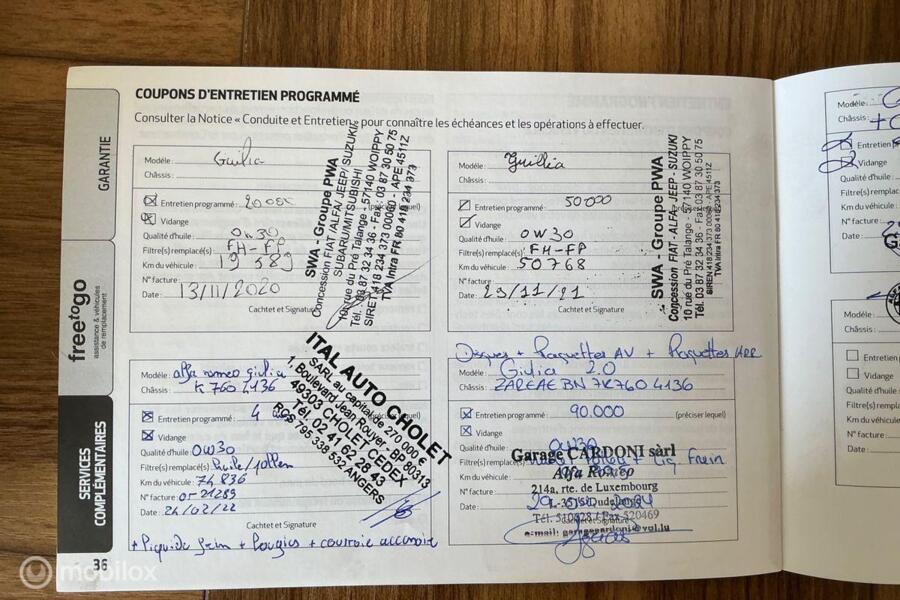 COUPONS D'ENTRETIEN PROGRAMMÉ
Consulter la Notice « Conduite et Entretien » pour connaître les échéances et les opérations à effectuer.
GARANTIE
freetogo
assistance & véhicules
de remplacement
SERVICES
COMPLÉMENTAIRES
36
Modèle : Giulia
Châssis :
Entretien programmé : 20000 (préciser lequel)
Vidange
Qualité d'huile : 0W30
Filtre(s) remplacé(s) : FH-FP
Km du véhicule : 19589
N° facture :
Date : 13/11/2020
Cachet et Signature
SWA - Groupe PWA
Concession FIAT /ALFA/ JEEP/ SUZUKI/
SUBARU/MITSUBISHI
10 rue du Pré Talange - 57140 WOIPPY
Tél. 03 87 32 34 36 - Fax 03 87 30 50 75
SIRET 418 234 373 00060 - APE 4511Z
TVA Intra FR 80 418 234 373
Modèle : Guillia
Châssis :
Entretien programmé : 50000 (préciser lequel)
Vidange
Qualité d'huile : 0W30
Filtre(s) remplacé(s) : FH-FP
Km du véhicule : 50768
N° facture :
Date : 23/11/21
Cachet et Signature
SWA - Groupe PWA
Concession FIAT - ALFA - JEEP - SUZUKI
10 rue du Pré Talange - 57140 WOIPPY
Tél. 03 87 32 34 36 - Fax 03 87 30 50 75
SIREN 418 234 373 00060 - APE 4511Z
TVA Intra FR 80 418 234 373
Modèle : alfa romeo giulia
Châssis : K7604136
Entretien programmé : 4 (préciser lequel)
Vidange
Qualité d'huile : 0W30
Filtre(s) remplacé(s) : Huile/pollen
Km du véhicule : 74836
N° facture : 0521289
Date : 24/02/22
Cachet et Signature
+ liquide frein + bougies + courroie accessoire
ITAL AUTO CHOLET
SARL au capital de 270 000 €
1, Boulevard Jean Rouyer - BP 80313
49303 CHOLET CEDEX
Tél. 02 41 62 28 43
RCS 795 338 532 ANGERS
Disques + Plaquettes AV + Plaquettes ARR
Modèle : Giulia 2.0
Châssis : ZAREAEBN7K7604136
Entretien programmé : 90.000 (préciser lequel)
Vidange
Qualité d'huile : 0W30
Filtre(s) remplacé(s) : Pollen + Liq Frein
Km du véhicule :
N° facture :
Date :
Cachet et Signature
Garage CARDONI sàrl
Alfa Romeo
214a, rte. de Luxembourg
L-3515 Dudelange
e-mail: garagecardoni@vol.lu
Modèle :
Châssis :
Entretien
Vidange
Qualité d'huile
Filtre(s) remplacé
Km du véhicule :
N° facture :
Date :
Modèle :
Châssis :
Entretien p
Vidange
Qualité d'huile :
Filtre(s) remplacé(
Km du véhicule :
N° facture :
Date :
mobilox